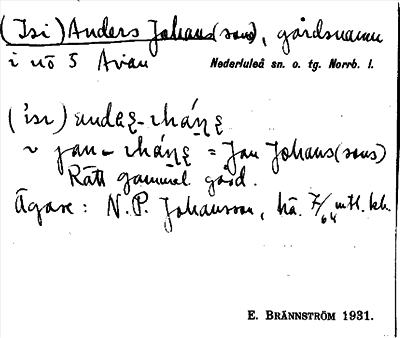 (Isi) Anders Johans(sons), gårdsnamn
i nö 5 Avan Nederluleå sn. o. tg. Norrb. l.
('isi)
= Jan Johans(sons)
Rätt gammal gård.
Ägare: N.P. Johansson, hä. 7/64 mtl. kh.
E. BRÄNNSTRÖM 1931.